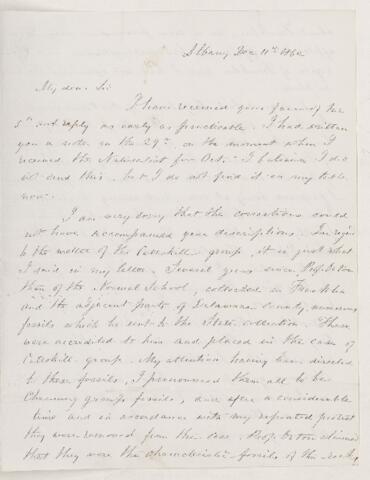 Albany Dec 11th 1862
My dear Sir
I have received your favor of the
5th and reply as early as practicable. I had written
you a note on the 29th, on the moment when I
received the Naturalist for Oct. I believe I did
not send this, but I do not find it on my table
now.
I am very sorry that the corrections could
not have accompanied your descriptions. In regard
to the matter of the Catskill group, it is just what
I said in my letter. Several years since Prof. Orton
then of the Normal School, collected in Franklin
and the adjacent parts of Delaware County, numerous
fossils which he sent to the State collection. These
were accredited to him and placed in the case of
Catskill group. My attention having been directed
to these fossils, I pronounced them all to be
Chemung group fossils, and after a considerable
time and in accordance with my repeated protest
they were removed from the case. Prof. Orton claimed
that they were the characteristic fossils of the rocks